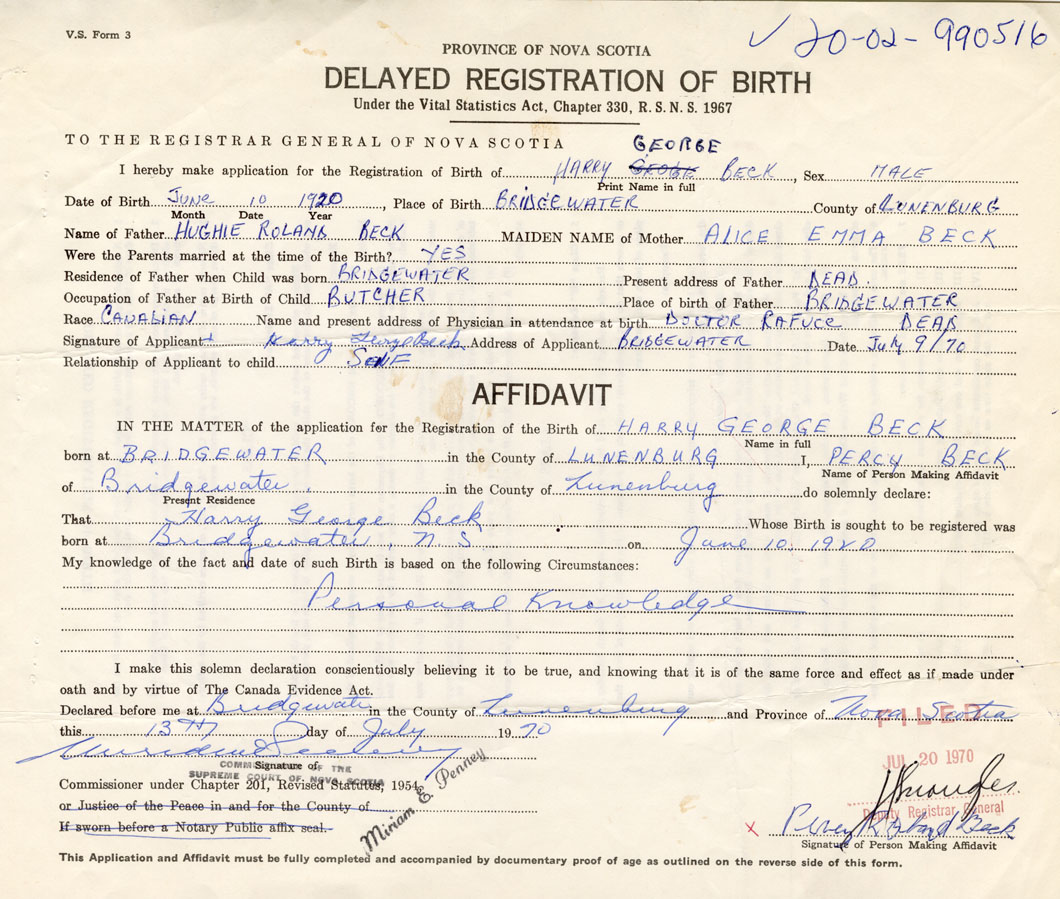 V.S. Form 3
✓ 20-02-990516
PROVINCE OF NOVA SCOTIA
DELAYED REGISTRATION OF BIRTH
Under the Vital Statistics Act, Chapter 330, R. S. N. S. 1967
TO THE REGISTRAR GENERAL OF NOVA SCOTIA
GEORGE
I hereby make application for the Registration of Birth of HARRY BECK, Sex MALE
Print Name in full
Date of Birth June 10 1920, Place of Birth BRIDGEWATER County of LUNENBURG
Month Date Year
Name of Father HUGHIE ROLAND BECK MAIDEN NAME of Mother ALICE EMMA BECK
Were the Parents married at the time of the Birth? YES
Residence of Father when Child was born BRIDGEWATER Present address of Father DEAD.
Occupation of Father at Birth of Child BUTCHER Place of birth of Father BRIDGEWATER
Race CANADIAN Name and present address of Physician in attendance at birth DOCTOR RAFUCE DEAD
Signature of Applicant Harry George Beck Address of Applicant BRIDGEWATER Date July 9/70
Relationship of Applicant to child SELF
AFFIDAVIT
IN THE MATTER of the application for the Registration of the Birth of HARRY GEORGE BECK
Name in full
born at BRIDGEWATER in the County of LUNENBURG I, PERCY BECK
Name of Person Making Affidavit
of Bridgewater. in the County of Lunenburg do solemnly declare:
Present Residence
That Harry George Beck Whose Birth is sought to be registered was
born at Bridgewater, N S. on June 10, 1920
My knowledge of the fact and date of such Birth is based on the following Circumstances:
Personal Knowledge
I make this solemn declaration conscientiously believing it to be true, and knowing that it is of the same force and effect as if made under
oath and by virtue of The Canada Evidence Act.
Declared before me at Bridgewater in the County of Lunenburg and Province of Nova Scotia
FILED
this 13TH day of July 1970
JUL 20 1970
Signature of
SUPREME COURT OF NOVA SCOTIA
Commissioner under Chapter 201, Revised Statutes, 1954,
Miriam E. Penney
or Justice of the Peace in and for the County of
Deputy Registrar General
If sworn before a Notary Public affix seal.
x Percy Roland Beck
Signature of Person Making Affidavit
This Application and Affidavit must be fully completed and accompanied by documentary proof of age as outlined on the reverse side of this form.